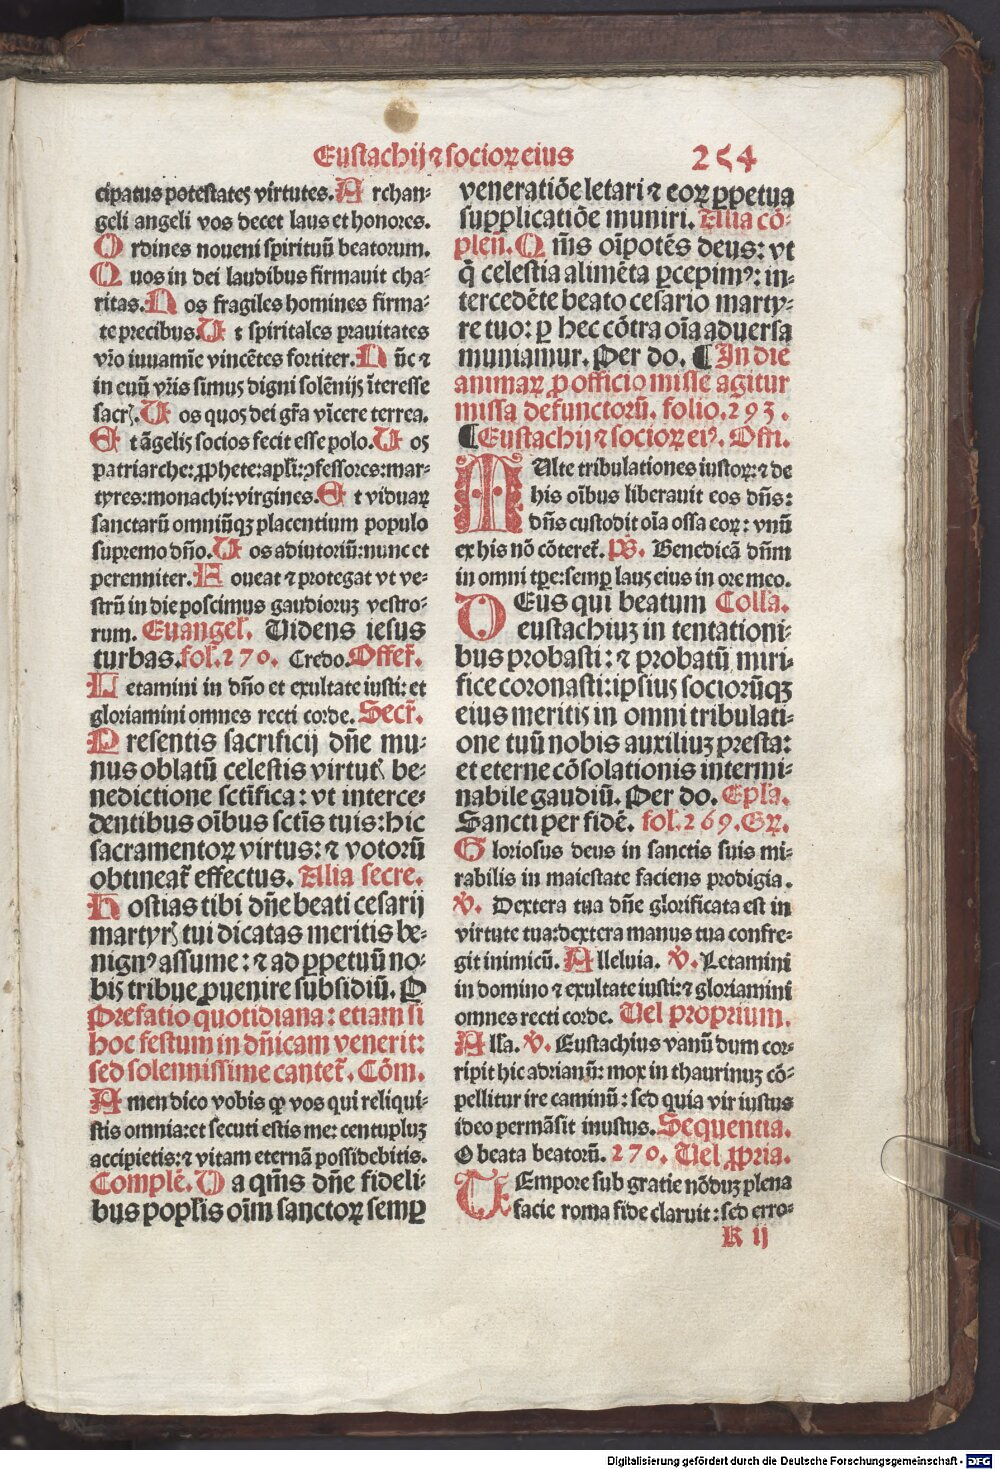 Eustachij ⁊ socioꝝ eius 254
cipatus potestates virtutes. A rchan⸗
geli angeli vos decet laus et honores.
O rdines noueni spirituū beatorum.
Q uos in dei laudibus firmauit cha⸗
ritas. N os fragiles homines firma⸗
te precibus. U t spiritales prauitates
vr̄o iuuamīe vincētes fortiter. N ūc ⁊
in euū vr̄is simus digni solēnijs īteresse
sacrꝭ. U os quos dei gr̄a vīcere terrea.
E t āgelis socios fecit esse polo. U os
patriarche: ꝓphete: apl̄i: ꝯfessores: mar⸗
tyres: monachi: virgines. E t viduaꝝ
sanctarū omniūqꝫ placentium populo
supremo dn̄o. U os adiutoriū: nunc et
perenniter. F oueat ⁊ protegat vt ve⸗
strū in die poscimus gaudioruꝫ vestro⸗
rum. Euangel̄. Uidens iesus
turbas. fol̄. 270. Credo. Offer̄.
L etamini in dn̄o et exultate iusti: et
gloriamini omnes recti corde. Secr̄.
P resentis sacrificij dn̄e mu⸗
nus oblatū celestis virtutꝭ be⸗
nedictione sctīfica: vt interce⸗
dentibus oībus sctīs tuis: hic
sacramentoꝝ virtus: ⁊ votorū
obtineat̄ effectus. Alia secre.
H ostias tibi dn̄e beati cesarij
martyrꝭ tui dicatas meritis be⸗
nignꝰ assume: ⁊ ad ꝑpetuū no⸗
bis tribue ꝓuenire subsidiū. P
Prefatio quotidiana: etiam si
hoc festum in dn̄icam venerit:
sed solennissime cantet̄. Cōm.
A men dico vobis ꝙ vos qui reliqui⸗
stis omnia: et secuti estis me: centupluꝫ
accipietis: ⁊ vitam eternā possidebitis.
Complē. D a qm̄s dn̄e fideli⸗
bus popl̄is oīm sanctoꝝ semꝑ
veneratiōe letari ⁊ eoꝝ ꝑpetua
supplicatiōe muniri. Alia cō⸗
plen̄. Q m̄s oīpotēs deus: vt
q̄ celestia alimēta ꝑcepimꝰ: in⸗
tercedēte beato cesario marty⸗
re tuo: ꝑ hec cōtra oīa aduersa
muniamur. Per do. ¶ In die
animaꝝ ꝓ officio misse agitur
missa defunctorū. folio. 293.
¶ Eustachij ⁊ socioꝝ eiꝰ. Offi.
M Ulte tribulationes iustoꝝ: ⁊ de
his oībus liberauit eos dn̄s:
dn̄s custodit oīa ossa eoꝝ: vnū
ex his nō cōteret̄. ps̄. Benedicā dn̄m
in omni tꝑe: semꝑ laus eius in ore meo.
D Eus qui beatum Colla.
eustachiuꝫ in tentationi⸗
bus probasti: ⁊ probatū miri⸗
fice coronasti: ipsius sociorūqꝫ
eius meritis in omni tribulati⸗
one tuū nobis auxiliuꝫ presta:
et eterne cōsolationis intermi⸗
nabile gaudiū. Per do. Epl̄a.
Sancti per fidē. fol. 269. Gꝝ.
G loriosus deus in sanctis suis mi⸗
rabilis in maiestate faciens prodigia.
v̄. Dextera tua dn̄e glorificata est in
virtute tua: dextera manus tua confre⸗
git inimicū. A lleluia. v̄. Letamini
in domino ⁊ exultate iusti: ⁊ gloriamini
omnes recti corde. Uel proprium.
A ll'a. v̄. Eustachius vanū dum cor⸗
ripit hic adrianū: mox in thaurinuꝫ cō⸗
pellitur ire caminū: sed quia vir iustus
ideo permāsit inustus. Sequentia.
O beata beatorū. 270. Uel ꝓpria.
T Empore sub gratie nōduꝫ plena
facie roma fide claruit: sed erro⸗
K ij
Digitalisierung gefördert durch die Deutsche Forschungsgemeinschaft - DFG